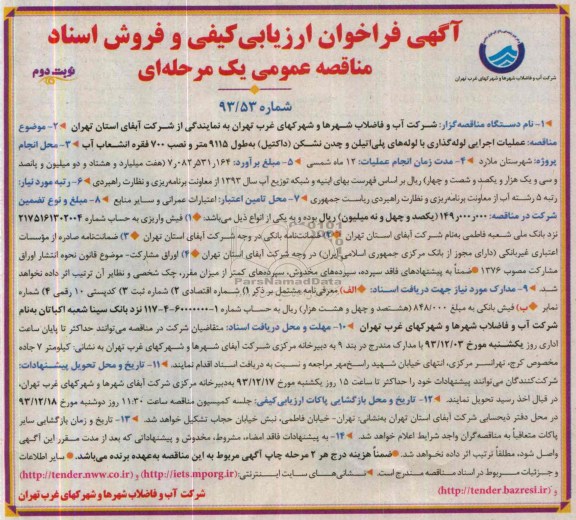 آگهی فراخوان ارزیابی‌کیفی و فروش اسناد
مناقصه عمومی یک مرحله‌ای
نوبت دوم
شرکت آب و فاضلاب شهرها و شهرکهای غرب تهران
شماره ۹۳/۵۳
۱- نام دستگاه مناقصه‌گزار: شرکت آب و فاضلاب شهرها و شهرکهای غرب تهران به نمایندگی از شرکت آبفای استان تهران ۲- موضوع
مناقصه: عملیات اجرایی لوله‌گذاری با لوله‌های پلی‌اتیلن و چدن نشکن (داکتیل) به‌طول ۹۱۱۵ متر و نصب ۷۰۰ فقره انشعاب آب ۳- محل انجام
پروژه: شهرستان ملارد ۴- مدت زمان انجام عملیات: ۱۲ ماه شمسی ۵- مبلغ برآورد: ۷٫۰۸۲٫۵۳۱٫۱۶۴ (هفت میلیارد و هشتاد و دو میلیون و پانصد
و سی و یک هزار و یکصد و شصت و چهار) ریال بر اساس فهرست بهای ابنیه و شبکه توزیع آب سال ۱۳۹۳ از معاونت برنامه‌ریزی و نظارت راهبردی ۶- رتبه مورد نیاز:
رتبه ۵ رشته آب از معاونت برنامه‌ریزی و نظارت راهبردی ریاست جمهوری ۷- محل تامین اعتبار: اعتبارات عمرانی و سایر منابع ۸- مبلغ و نوع تضمین
شرکت در مناقصه: ۱۴۹٫۰۰۰٫۰۰۰ (یکصد و چهل و نه میلیون) ریال بوده و به یکی از انواع ذیل می‌باشد: ۱) فیش واریزی به حساب شماره ۲۱۷۵۱۶۱۳۰۲۰۰۴
نزد بانک ملی شعبه فاطمی به‌نام شرکت آبفای استان تهران ۲) ضمانت‌نامه بانکی در وجه شرکت آبفای استان تهران ۳) ضمانت‌نامه صادره از مؤسسات
اعتباری غیربانکی (دارای مجوز از بانک مرکزی جمهوری اسلامی ایران) در وجه شرکت آبفای استان تهران ۴) اوراق مشارکت- موضوع قانون نحوه انتشار اوراق
مشارکت مصوب ۱۳۷۶ ضمناً به پیشنهادهای فاقد سپرده، سپرده‌های مخدوش، سپرده‌های کمتر از میزان مقرر، چک شخصی و نظایر آن ترتیب اثر داده نخواهد
شد. ۹- مدارک مورد نیاز جهت دریافت اسناد: الف) معرفی‌نامه مشتمل بر ذکر ۱) شماره اقتصادی ۲) شماره ثبت ۳) کدپستی ۱۰ رقمی ۴) شماره
نمابر ب) فیش بانکی به مبلغ ۸۴۸/۰۰۰ (هشتصد و چهل و هشت هزار) ریال به حساب شماره نزد بانک سینا شعبه اکباتان به‌نام
شرکت آب و فاضلاب شهرها و شهرکهای غرب تهران ۱۰- مهلت و محل دریافت اسناد: متقاضیان شرکت در مناقصه می‌توانند حداکثر تا پایان ساعت
اداری روز یکشنبه مورخ ۹۳/۱۲/۰۳ با مدارک مندرج در بند ۹ به دبیرخانه مرکزی شرکت آبفای شهرها و شهرکهای غرب تهران به نشانی: کیلومتر ۷ جاده
مخصوص کرج، تهرانسر مرکزی، انتهای خیابان شهید راسخ‌مهر مراجعه و نسبت به دریافت اسناد اقدام نمایند. ۱۱- تاریخ و محل تحویل پیشنهادات:
شرکت‌کنندگان می‌توانند پیشنهادات خود را حداکثر تا ساعت ۱۵ روز یکشنبه مورخ ۹۳/۱۲/۱۷ به‌دبیرخانه مرکزی شرکت آبفای شهرها و شهرکهای غرب تهران،
در قبال اخذ رسید تحویل نمایند. ۱۲- تاریخ و محل بازگشایی پاکات ارزیابی کیفی: جلسه کمیسیون مناقصه ساعت ۱۱:۳۰ روز دوشنبه مورخ ۹۳/۱۲/۱۸
در محل دفتر ذیحسابی شرکت آبفای استان تهران به‌نشانی: تهران- خیابان فاطمی، نبش خیابان حجاب تشکیل خواهد شد. ۱۳- تاریخ و زمان بازگشایی سایر
پاکات متعاقباً به مناقصه‌گران واجد شرایط اعلام خواهد شد. ۱۴- به پیشنهادات فاقد امضاء، مشروط، مخدوش و پیشنهاداتی که بعد از مدت مقرر این آگهی
واصل شود، مطلقاً ترتیب اثر داده نخواهد شد. ضمناً هزینه درج هر ۲ مرحله چاپ آگهی مربوط به این مناقصه به‌عهده برنده می‌باشد. سایر اطلاعات
و جزئیات مربوط در اسناد مناقصه مندرج است. نشانی‌های سایت اینترنتی: (http://iets.mporg.ir) و (http://tender.nww.co.ir)
و (http://tender.bazresi.ir)
شرکت آب و فاضلاب شهرها و شهرکهای غرب تهران
ParsNamadData